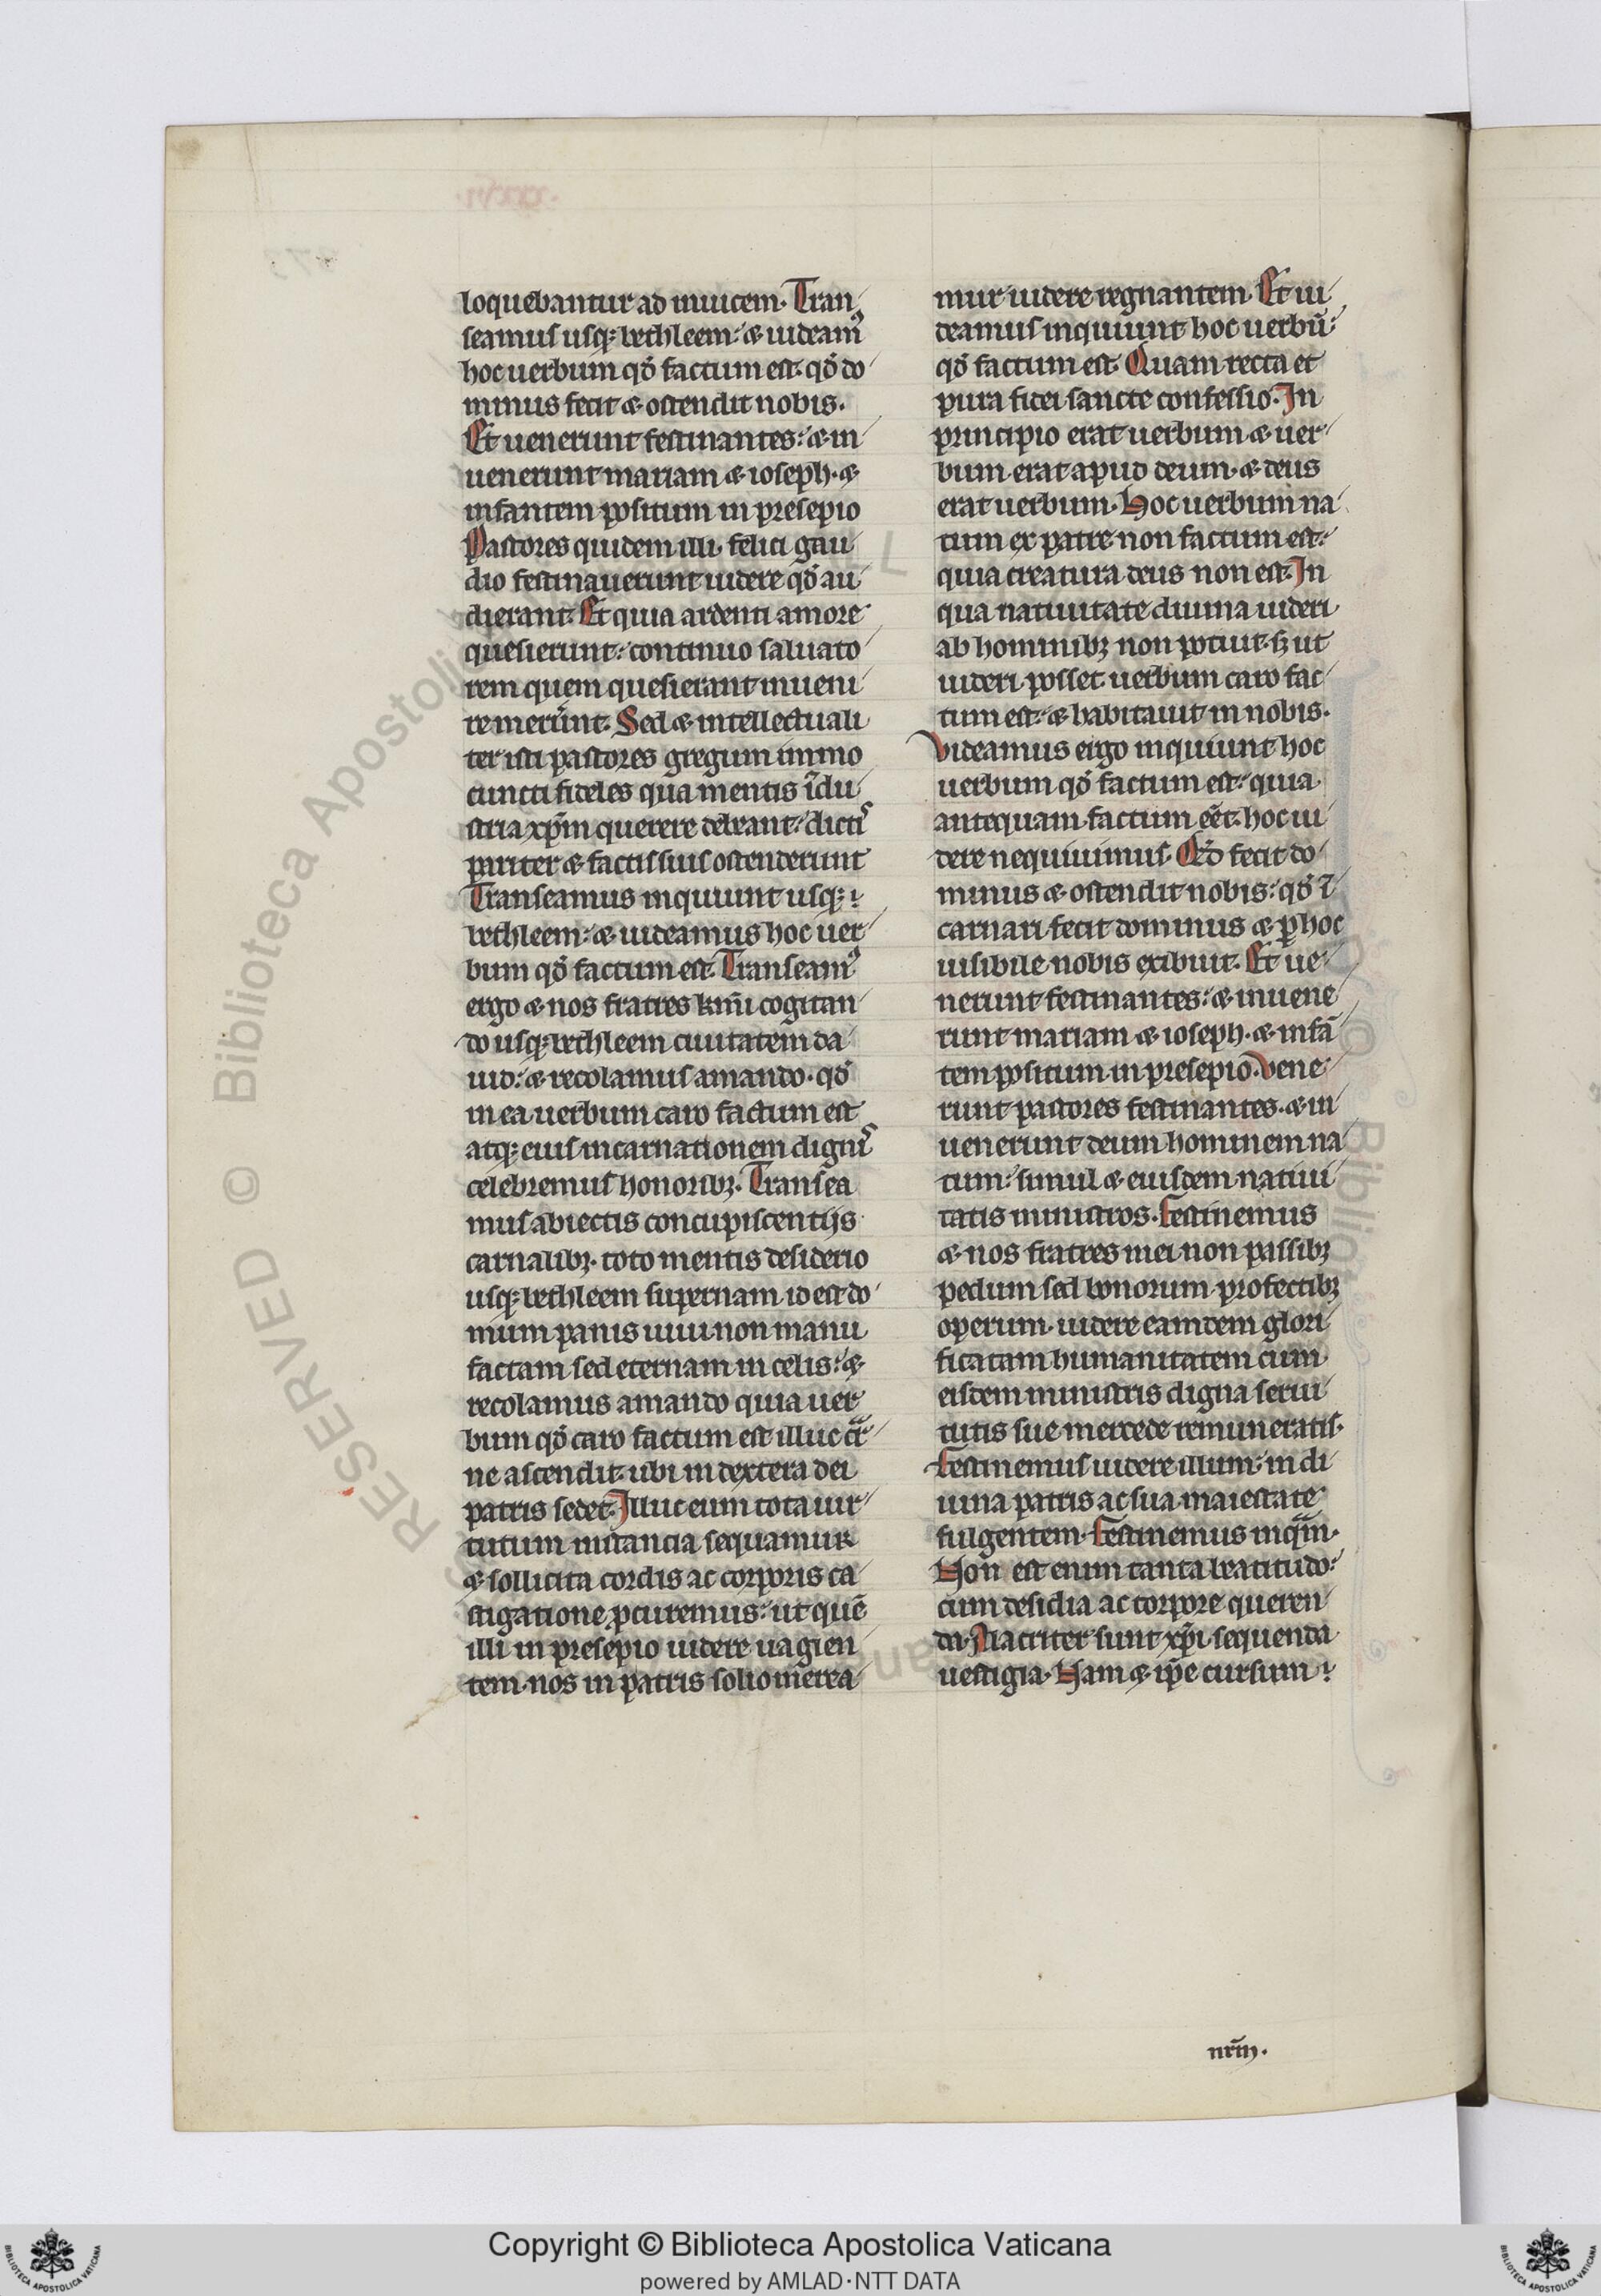 loquebantur ad inuicem. Tran
seamus usq; bethleem: & uideam9
hoc uerbum qđ factum est. qđ do
minus fecit & ostendit nobis.
Et uenerunt festinantes: & in
uenerunt mariam & ioseph. &
infantem positum in presepio
Pastores quidem illi felici gau
dio festinauerunt uidere qđ au
dierant. Et quia ardenti amore
quesierunt: continuo saluato
rem quem quesierant inueni
re merũnt. Sed & intellectuali
ter isti pastores gregum immo
cuncti fideles qua mentis ĩdu
stria xp̃m querere debeant: dicti
pariter & factis suis ostenderunt
Transeamus inquiunt usq;
bethleem: & uideamus hoc uer
bum qđ factum est. Transeam9
ergo & nos fratres km̃i cogitan
do usq; bethleem ciuitatem da
uid: & recolamus amando. qđ
in ea uerbum caro factum est
atq; eius incarnationem digni
celebremus honorib;. Transea
mus abiectis concupiscentijs
carnalib;. toto mentis desiderio
usq; bethleem supernam id est do
mum panis uiui non manu
factam sed eternam in celis: &
recolamus amando quia uer
bum qđ caro factum est illuc cr̃
ne ascendit. ubi in dextera dei
patris sedet. Illuc eum tota uir
tutum instancia sequamur
& sollicita cordis ac corporis ca
stigatione ꝓcuremus: ut quẽ
illi in presepio uidere uagien
tem. nos in patris solio merea
mur uidere regnantem. Et ui
deamus inquiunt hoc uerbũ:
qđ factum est. Quam recta et
pura fidei sancte confessio. In
principio erat uerbum & uer
bum erat apud deum. & deus
erat uerbum. Hoc uerbum na
tum ex patre non factum est:
quia creatura deus non est. In
qua natiuitate diuina uideri
ab hominib; non potuit. sꝫ ut
uideri posset. uerbum caro fac
tum est: & habitauit in nobis.
Videamus ergo inquiunt hoc
uerbum qđ factum est: quia
antequam factum eẽt. hoc ui
dere nequiuimus. Qđ fecit do
minus & ostendit nobis: qđ ĩ
carnari fecit dominus & ꝑ hoc
uisibile nobis exibuit. Et ue
nerunt festinantes: & inuene
runt mariam & ioseph. & infã
tem positum in presepio. Vene
runt pastores festinantes. & in
uenerunt deum hominem na
tum: simul & eiusdem natiui
tatis ministros. Festinemus
& nos fratres mei non passib;
pedum sed bonorum profectib;
operum. uidere eamdem glori
ficatam humanitatem cum
eisdem ministris digna serui
tutis sue mercede remuneratis.
Festinemus uidere illum: in di
uina patris ac sua maiestate
fulgentem. Festinemus inq̃m.
Non est enim tanta beatitudo:
cum desidia ac torpore queren
da. Alacriter sunt xp̃i sequenda
uestigia. Nam & ip̃e cursum
nr̃m.
RESERVED © Biblioteca Apostolica
© Bibliot
Copyright © Biblioteca Apostolica Vaticana
powered by AMLAD·NTT DATA